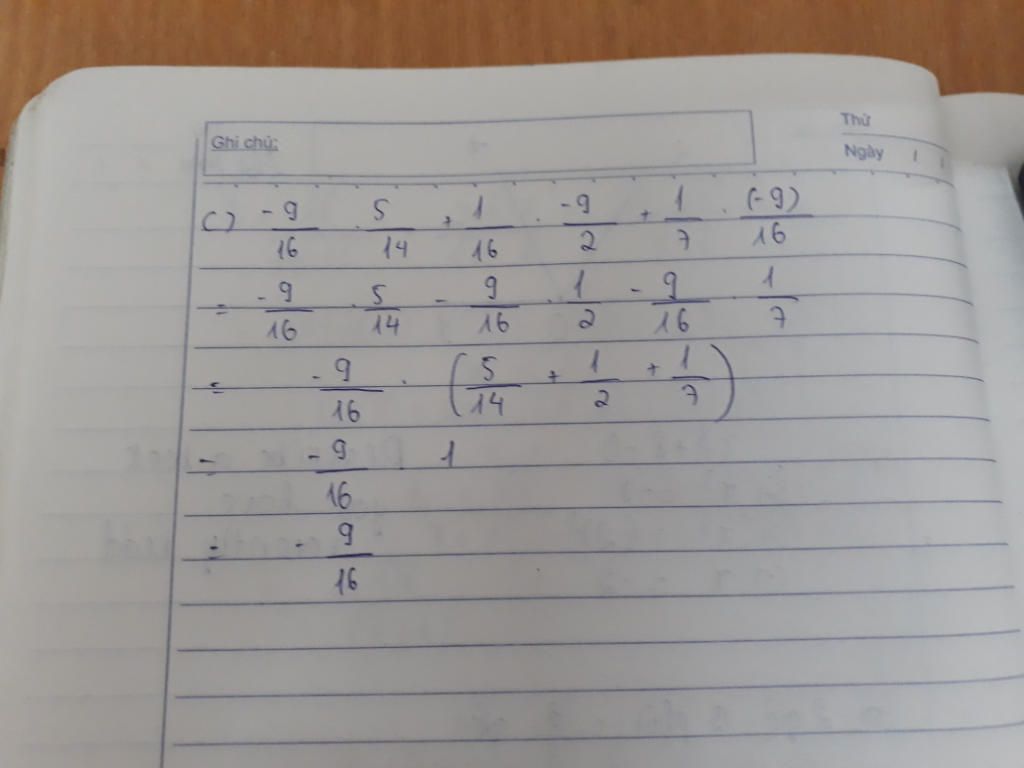 Ghi chú:
Thứ
Ngày / /
c) -9/16 . 5/14 + 1/16 . -9/2 + 1/7 . (-9)/16
= -9/16 . 5/14 - 9/16 . 1/2 - 9/16 . 1/7
= -9/16 . (5/14 + 1/2 + 1/7)
= -9/16 1
= -9/16